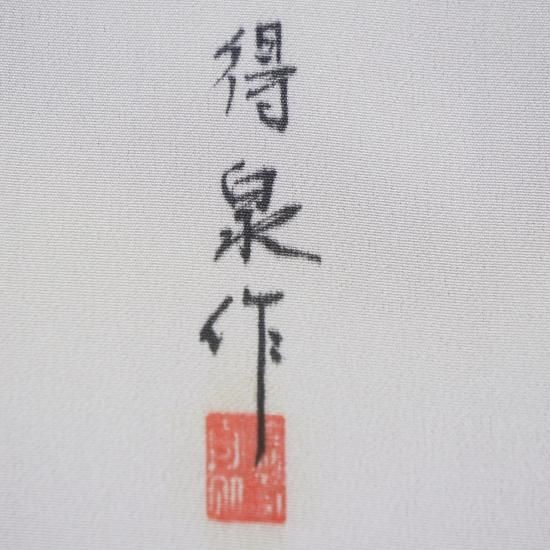 得泉作